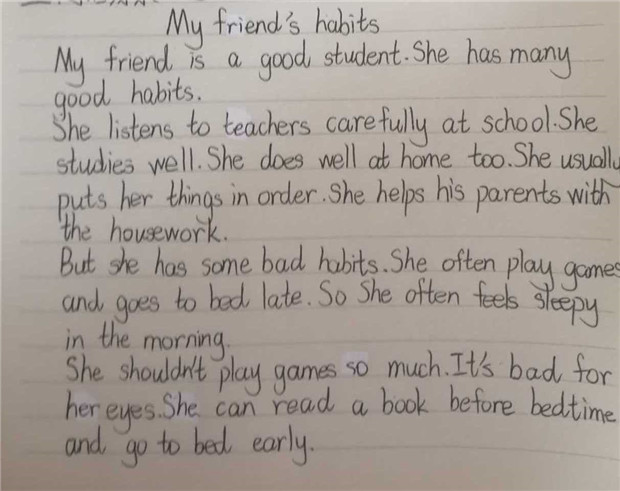 My friend's habits
My friend is a good student. She has many
good habits.
She listens to teachers carefully at school. She
studies well. She does well at home too. She usually
puts her things in order. She helps his parents with
the housework.
But she has some bad habits. She often play games
and goes to bed late. So She often feels sleepy
in the morning.
She shouldn't play games so much. It's bad for
her eyes. She can read a book before bedtime
and go to bed early.